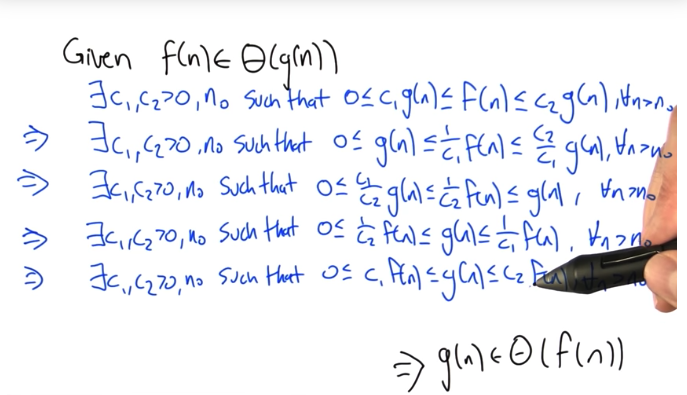 Given f(n) ∈ Θ(g(n))
∃c₁,c₂>0, n₀ such that 0≤c₁g(n)≤f(n)≤c₂g(n), ∀n>n₀
⇒ ∃c₁,c₂>0, n₀ such that 0≤ g(n) ≤ 1/c₁ f(n) ≤ c₂/c₁ g(n), ∀n>n₀
⇒ ∃c₁,c₂>0, n₀ such that 0≤ c₁/c₂ g(n) ≤ 1/c₂ f(n) ≤ g(n), ∀n>n₀
⇒ ∃c₁,c₂>0, n₀ such that 0≤ 1/c₂ f(n) ≤ g(n) ≤ 1/c₁ f(n), ∀n>n₀
⇒ ∃c₁,c₂>0, n₀ such that 0≤ c₁ f(n) ≤ g(n) ≤ c₂ f(n)
⇒ g(n) ∈ Θ(f(n))